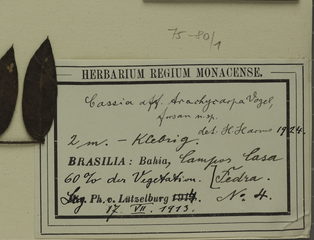 75-80/1
HERBARIUM REGIUM MONACENSE.
Cassia aff. Arachycarpa Vogel,
n. sp.
det. H. Harms 1924.
2 m. – Klebrig.
BRASILIA: Bahia, Campos Casa
60% der Vegetation. [Pedra.
Leg. Ph. v. Lützelburg No. 4.
17. VII. 1913.